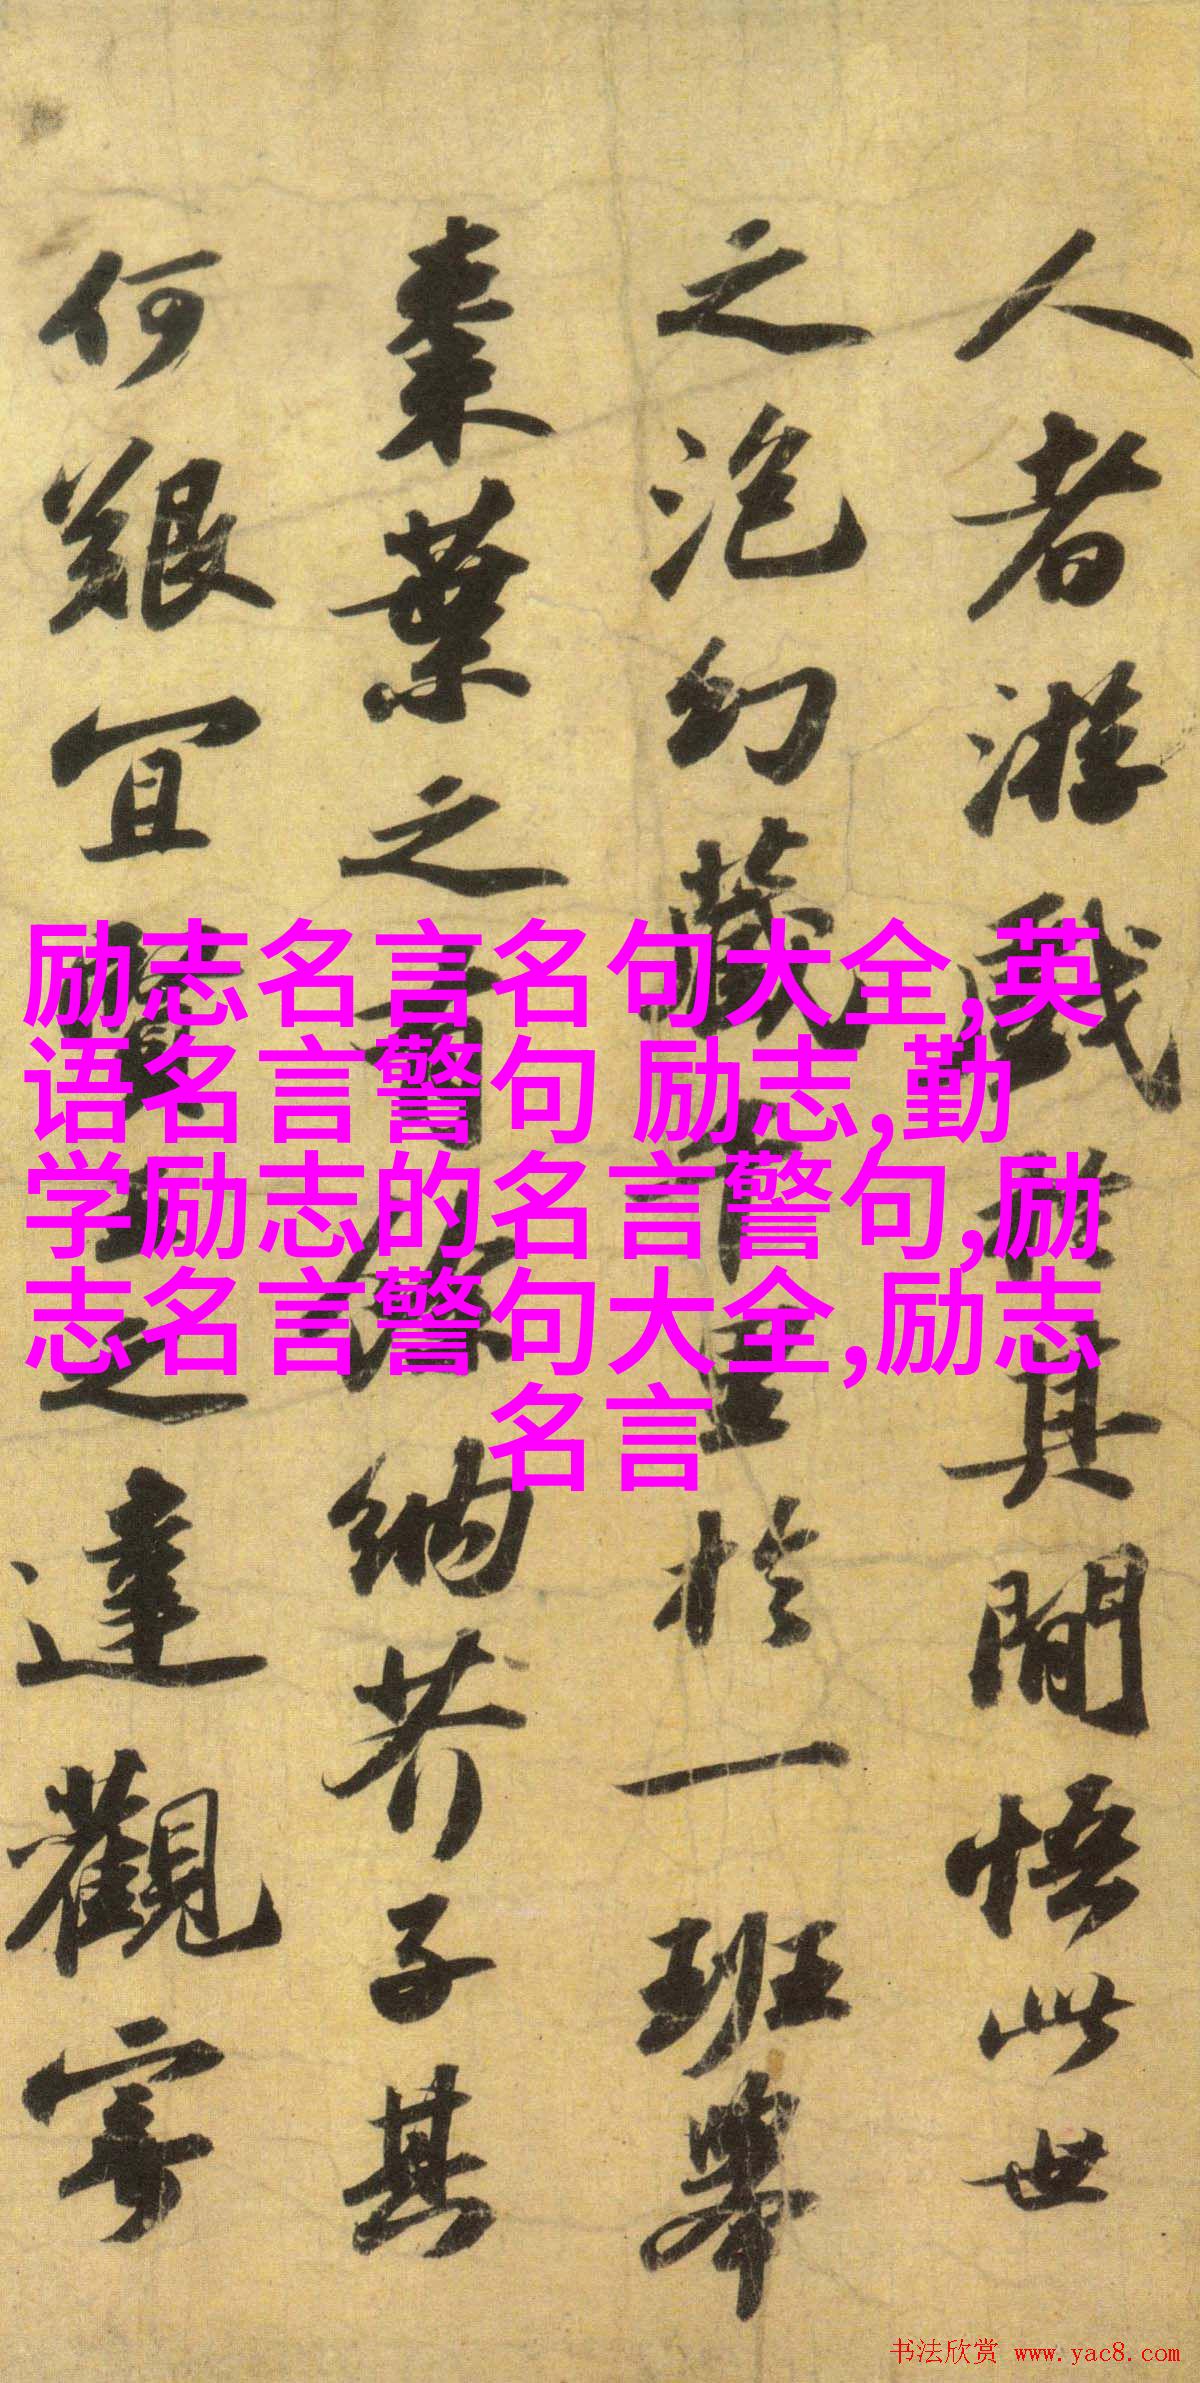 人者游戲於其間悟此世
之泡幻藏千里於一班舉
棗葉之有餘納芥子其
何艱宜賢王之達觀寄
励志名言名句大全,英
语名言警句 励志,勤
学励志的名言警句,励
志名言警句大全,励志
名言
书法欣赏 www.yac8.com